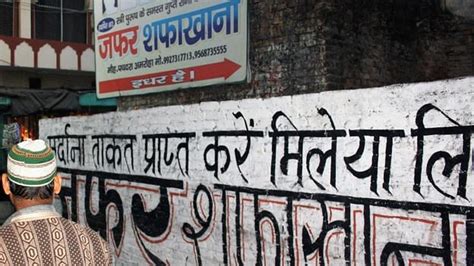 स्त्री पुरुष के समस्त गुप्त रोगों
जफर शफाखाना
मौह. पचदरा अमरोहा मो.9927137713, 9568735555
इधर है।
मर्दाना ताकत प्राप्त करें मिलें या लि
जफर शफाखाना